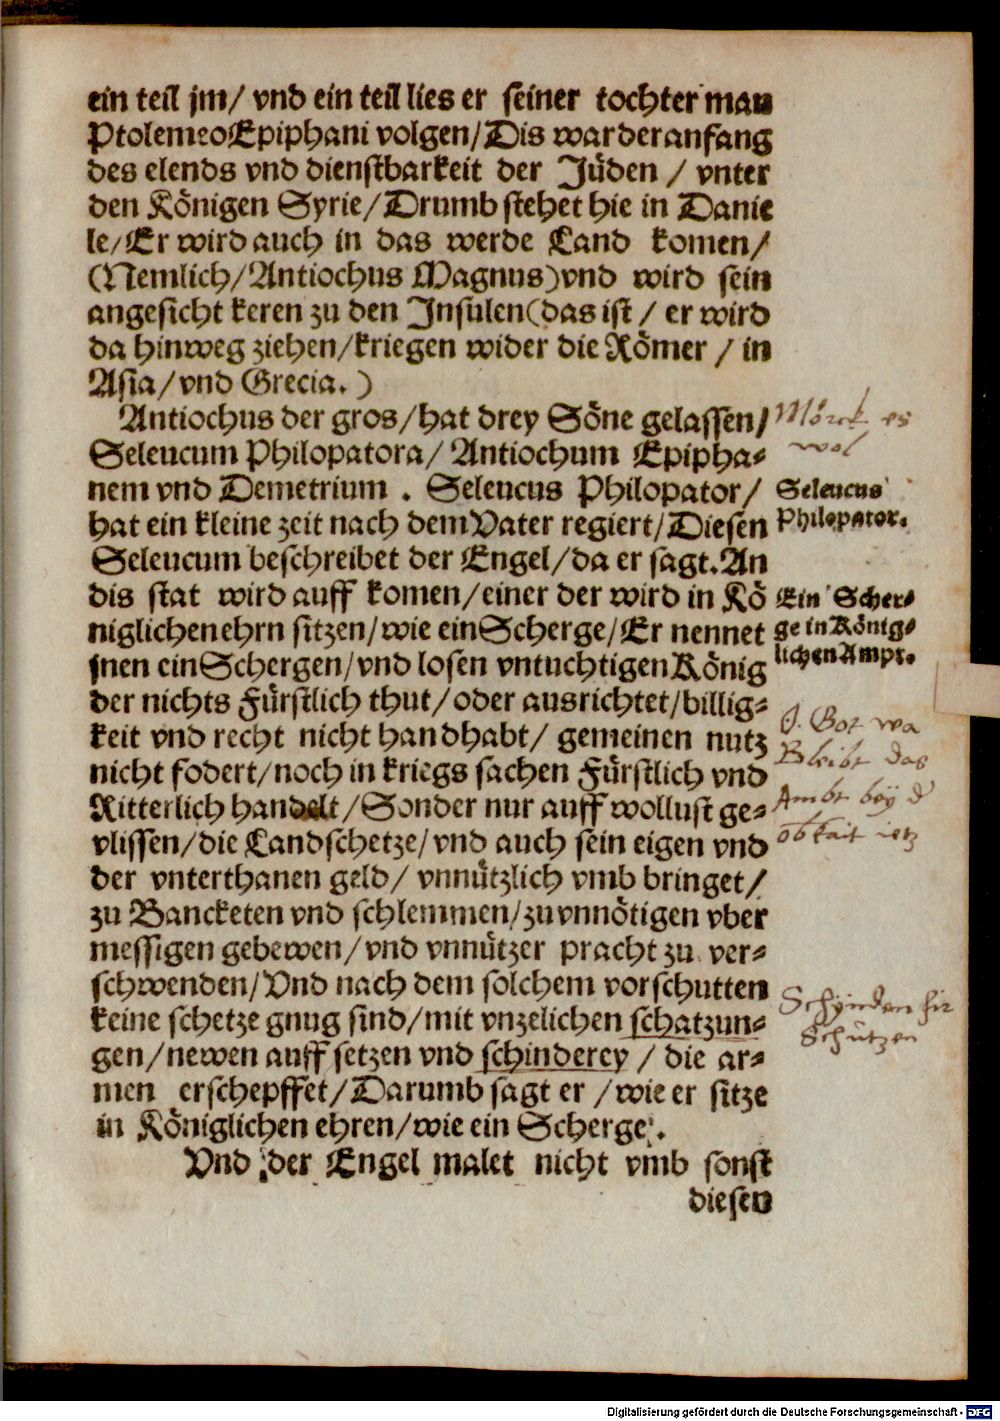 ein teil jm/ vnd ein teil lies er seiner tochter man
Ptolemeo Epiphani volgen/ Dis war der anfang
des elends vnd dienstbarkeit der Jüden / vnter
den Königen Syrie/ Drumb stehet hie in Danie
le/ Er wird auch in das werde Land komen/
(Nemlich/ Antiochus Magnus) vnd wird sein
angesicht keren zu den Insulen (das ist / er wird
da hinweg ziehen/ kriegen wider die Römer / in
Asia/ vnd Grecia. )
Antiochus der gros/ hat drey Söne gelassen/
Mörck es
wol
Seleucum Philopatora/ Antiochum Epipha-
nem vnd Demetrium . Seleucus Philopator/
Seleucus
Philopator.
hat ein kleine zeit nach dem Vater regiert/ Diesen
Seleucum beschreibet der Engel/ da er sagt. An
dis stat wird auff komen/ einer der wird in Kö
Ein Scher-
ge in König-
lichen Ampt.
niglichen ehrn sitzen/ wie ein Scherge/ Er nennet
jnen ein Schergen/ vnd losen vntuchtigen König
der nichts Fürstlich thut/ oder ausrichtet/ billig-
keit vnd recht nicht handhabt/ gemeinen nutz
O. Got wa
Bleibt das
Ambt bey d
obkait ietz
nicht fodert/ noch in kriegs sachen Fürstlich vnd
Ritterlich handelt/ Sonder nur auff wollust ge-
vlissen/ die Landschetze/ vnd auch sein eigen vnd
der vnterthanen geld/ vnnützlich vmb bringet/
zu Bancketen vnd schlemmen/ zu vnnötigen vber
messigen gebewen/ vnd vnnützer pracht zu ver-
schwenden/ Vnd nach dem solchem vorschutten
keine schetze gnug sind/ mit vnzelichen schatzun-
Schinden für
Schützen
gen/ newen auff setzen vnd schinderey / die ar-
men erschepffet/ Darumb sagt er / wie er sitze
in Königlichen ehren/ wie ein Scherge .
Vnd der Engel malet nicht vmb sonst
diesen
Digitalisierung gefördert durch die Deutsche Forschungsgemeinschaft - DFG